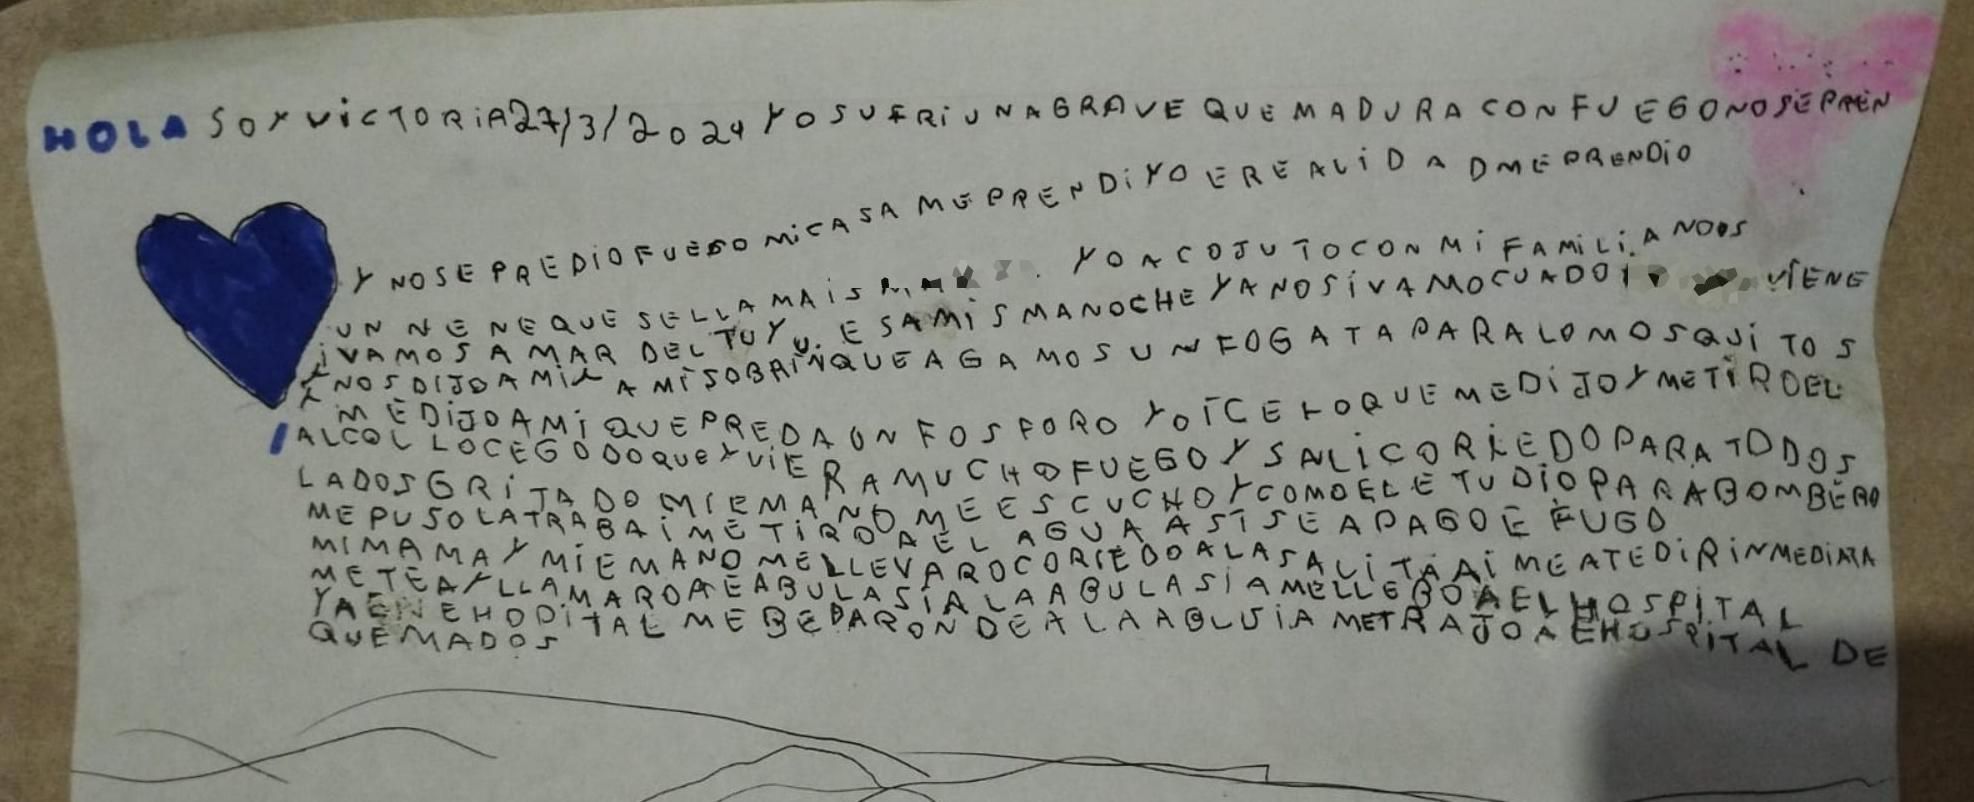 HOLA SOY VICTORIA 27/3/2024 YO SUFRI UNA GRAVE QUEMADURA CON FUEGO NO SE PREN
Y NO SE PREDIO FUEGO MI CASA ME PRENDI YO E REALIDAD ME PRENDIO
UN NENE QUE SE LLAMA YO ACOJUTO CON MI FAMILIA NOOS
IVAMOS A MAR DEL TUYU. ESA MISMA NOCHE YA NOS IVAMO CUADO VIENE
Y NOS DIJO A MI Y A MI SOBRIN QUE AGAMOS UN FOGATA PARA LO MOSQUITOS
Y ME DIJO A MI QUE PREDA UN FOSFORO YO ICE LO QUE ME DIJO Y ME TIRO EL
ALCOL LO CEGODO QUE Y VI ERA MUCHO FUEGO Y SALI CORIEDO PARA TODOS
LADOS GRITADO MI EMANO ME ESCUCHO Y COMO EL ETUDIO PARA BOMBERO
ME PUSO LA TRABA I ME TIRO A EL AGUA ASI SE APAGO E FUGO
MI MAMA Y MI EMANO ME LLEVARO CORIEDO A LA SALITA AI ME ATEDIR INMEDIATA
METEA Y LLAMARO A E ABULASIA LA ABULASIA ME LLEGO A EL HOSPITAL
YA EN E HOPITAL ME BEPARON DE A LA ABLUSIA ME TRAJO A E HOSPITAL DE
QUEMADOS